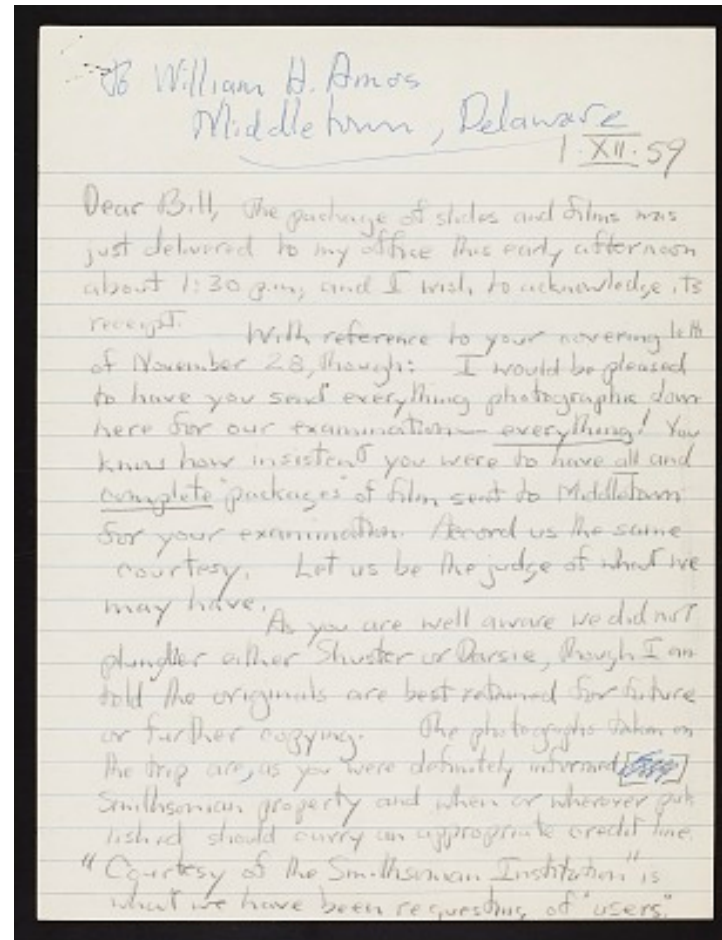 To William H. Amos
Middletown, Delaware
1·XII·59
Dear Bill, The package of slides and films was
just delivered to my office this early afternoon
about 1:30 p.m., and I wish to acknowledge its
receipt. With reference to your covering lett
of November 28, though: I would be pleased
to have you send everything photographic down
here for our examination — everything! You
know how insistent you were to have all and
complete "packages" of film sent to Middletown
for your examination. Accord us the same
courtesy. Let us be the judge of what we
may have.
As you are well aware we did not
plunder either Shuster or Darsie, though I am
told the originals are best retained for future
or further copying. The photographs taken on
the trip are, as you were definitely informed
Smithsonian property and when or wherever pub
lished should carry an appropriate credit line.
"Courtesy of the Smithsonian Institution" is
what we have been requesting of "users."